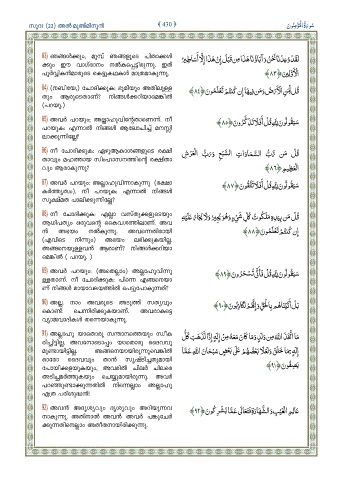 സൂറ: (23) അൽ മുഅ്മിനൂൻ
﴾ 430 ﴿
سُورَةُ المُؤْمِنُونَ
83) ഞങ്ങൾക്കും, മുമ്പ് ഞങ്ങളുടെ പിതാക്കൾ
ക്കും ഈ വാഗ്ദാനം നൽകപ്പെട്ടിരുന്നു. ഇത്
പൂർവ്വികന്മാരുടെ കെട്ടുകഥകൾ മാത്രമാകുന്നു.
لَقَدْ وُعِدْنَا نَحْنُ وَآبَاؤُنَا هَذَا مِن قَبْلُ إِنْ هَذَا إِلَّا أَسَاطِيرُ
الْأَوَّلِينَ ﴿٨٣﴾
84) (നബിയേ,) ചോദിക്കുക: ഭൂമിയും അതിലുള്ള
തും ആരുടെതാണ്? നിങ്ങൾക്കറിയാമെങ്കിൽ
(പറയൂ.)
قُل لِّمَنِ الْأَرْضُ وَمَن فِيهَا إِن كُنتُمْ تَعْلَمُونَ ﴿٨٤﴾
85) അവർ പറയും: അല്ലാഹുവിന്റേതാണെന്ന്. നീ
പറയുക: എന്നാൽ നിങ്ങൾ ആലോചിച്ച് മനസ്സി
ലാക്കുന്നില്ലേ?
سَيَقُولُونَ لِلَّهِ قُلْ أَفَلَا تَذَكَّرُونَ ﴿٨٥﴾
86) നീ ചോദിക്കുക: ഏഴുആകാശങ്ങളുടെ രക്ഷി
താവും മഹത്തായ സിംഹാസനത്തിന്റെ രക്ഷിതാ
വും ആരാകുന്നു?
قُلْ مَن رَّبُّ السَّمَاوَاتِ السَّبْعِ وَرَبُّ الْعَرْشِ
الْعَظِيمِ ﴿٨٦﴾
87) അവർ പറയും: അല്ലാഹുവിന്നാകുന്നു (രക്ഷാ
കർത്തൃത്വം). നീ പറയുക: എന്നാൽ നിങ്ങൾ
സൂക്ഷ്മത പാലിക്കുന്നില്ലേ?
سَيَقُولُونَ لِلَّهِ قُلْ أَفَلَا تَتَّقُونَ ﴿٨٧﴾
88) നീ ചോദിക്കുക: എല്ലാ വസ്തുക്കളുടെയും
ആധിപത്യം ഒരുവന്റെ കൈവശത്തിലാണ്. അവ
ൻ അഭയം നൽകുന്നു. അവന്നെതിരായി
(എവിടെ നിന്നും) അഭയം ലഭിക്കുകയില്ല.
അങ്ങനെയുള്ളവൻ ആരാണ്? നിങ്ങൾക്കറിയാ
മെങ്കിൽ ( പറയൂ. )
قُلْ مَن بِيَدِهِ مَلَكُوتُ كُلِّ شَيْءٍ وَهُوَ يُجِيرُ وَلَا يُجَارُ عَلَيْهِ
إِن كُنتُمْ تَعْلَمُونَ ﴿٨٨﴾
89) അവർ പറയും: (അതെല്ലാം) അല്ലാഹുവിന്നു
ള്ളതാണ്. നീ ചോദിക്കുക: പിന്നെ എങ്ങനെയാ
ണ് നിങ്ങൾ മായാവലയത്തിൽ പെട്ടുപോകുന്നത്?
سَيَقُولُونَ لِلَّهِ قُلْ فَأَنَّى تُسْحَرُونَ ﴿٨٩﴾
90) അല്ല, നാം അവരുടെ അടുത്ത് സത്യവും
കൊണ്ട് ചെന്നിരിക്കുകയാണ്. അവരാകട്ടെ
വ്യാജവാദികൾ തന്നെയാകുന്നു.
بَلْ أَتَيْنَاهُم بِالْحَقِّ وَإِنَّهُمْ لَكَاذِبُونَ ﴿٩٠﴾
91) അല്ലാഹു യാതൊരു സന്താനത്തെയും സ്വീക
രിച്ചിട്ടില്ല. അവനോടൊപ്പം യാതൊരു ദൈവവു
മുണ്ടായിട്ടില്ല. അങ്ങനെയായിരുന്നുവെങ്കിൽ
ഓരോ ദൈവവും താൻ സൃഷ്ടിച്ചതുമായി
പോയിക്കളയുകയും, അവരിൽ ചിലർ ചിലരെ
അടിച്ചമർത്തുകയും ചെയ്യുമായിരുന്നു. അവർ
പറഞ്ഞുണ്ടാക്കുന്നതിൽ നിന്നെല്ലാം അല്ലാഹു
എത്ര പരിശുദ്ധൻ!
مَا اتَّخَذَ اللَّهُ مِن وَلَدٍ وَمَا كَانَ مَعَهُ مِنْ إِلَهٍ إِذًا لَّذَهَبَ كُلُّ
إِلَهٍ بِمَا خَلَقَ وَلَعَلَا بَعْضُهُمْ عَلَى بَعْضٍ سُبْحَانَ اللَّهِ عَمَّا
يَصِفُونَ ﴿٩١﴾
92) അവൻ അദൃശ്യവും ദൃശ്യവും അറിയുന്നവ
നാകുന്നു. അതിനാൽ അവൻ അവർ പങ്കുചേർ
ക്കുന്നതിനെല്ലാം അതീതനായിരിക്കുന്നു.
عَالِمِ الْغَيْبِ وَالشَّهَادَةِ فَتَعَالَى عَمَّا يُشْرِكُونَ ﴿٩٢﴾